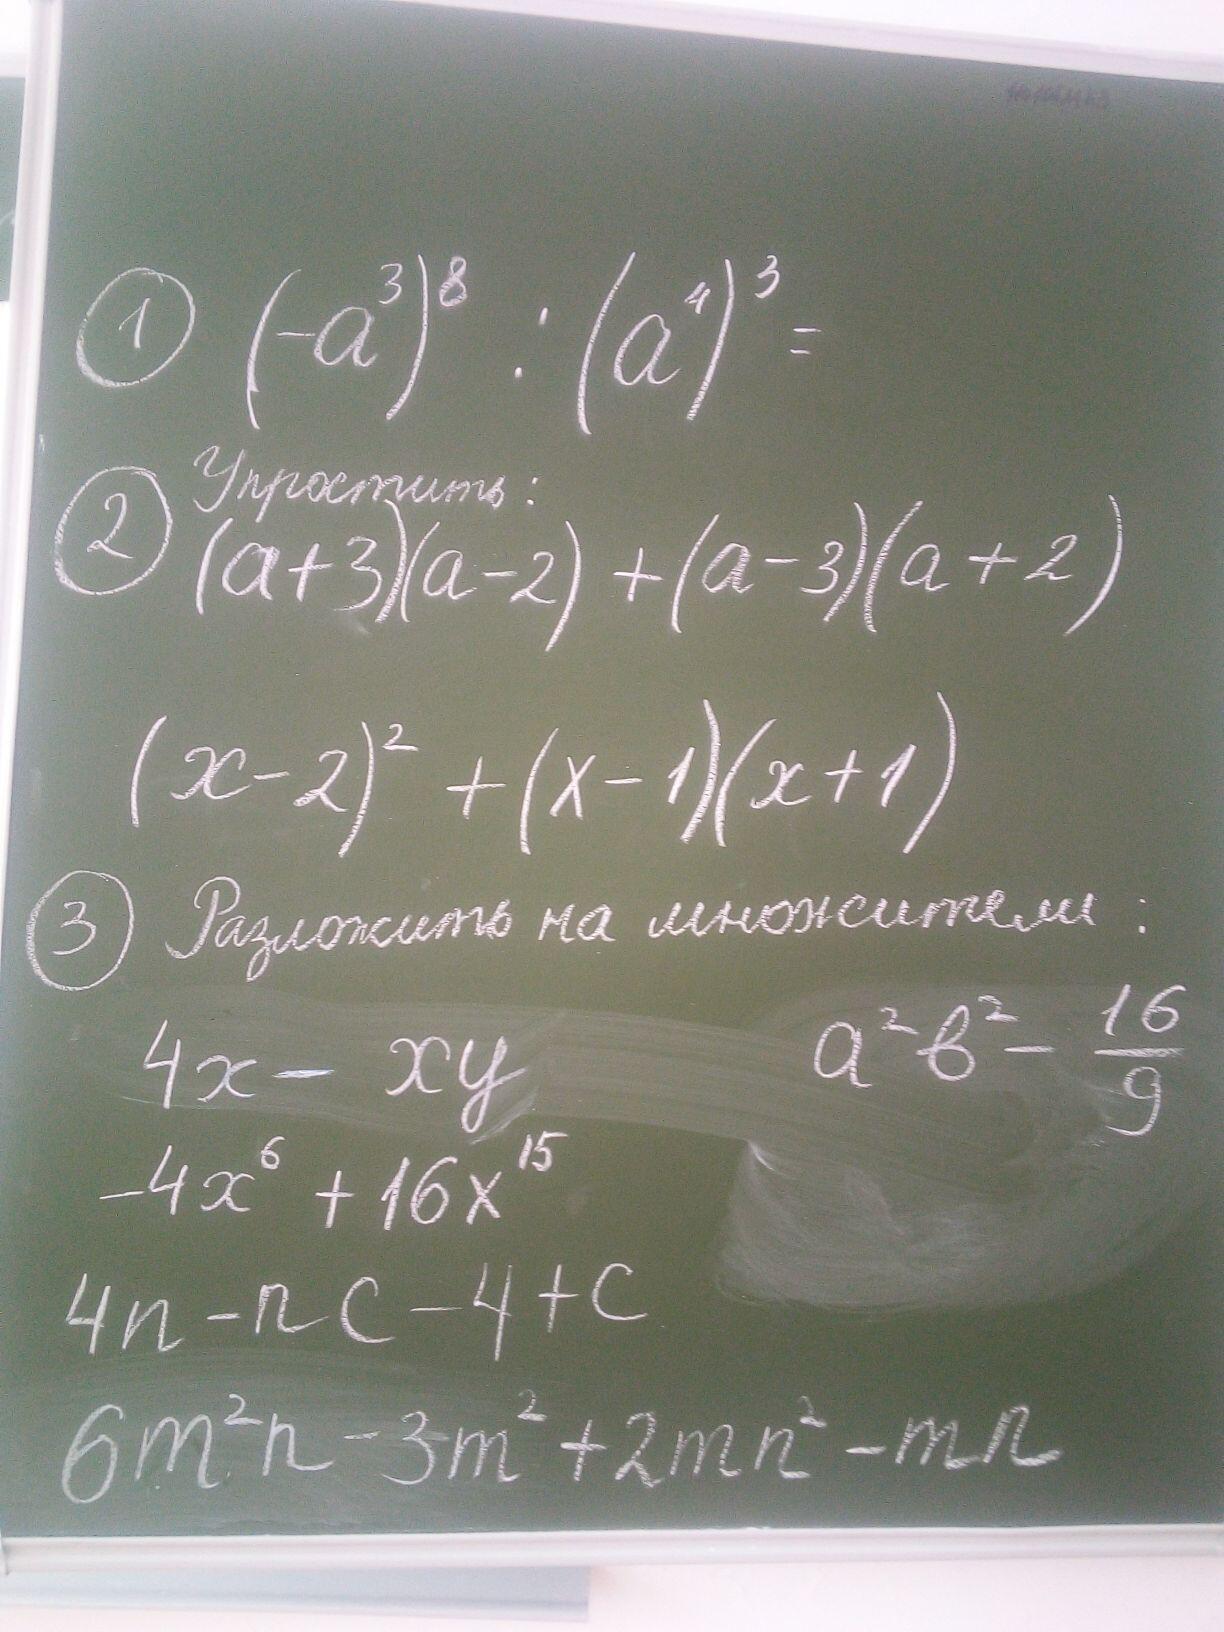 ① (-a³)⁸ : (a⁴)³ =
② Упростить:
(a+3)(a-2) + (a-3)(a+2)
(x-2)² + (x-1)(x+1)
③ Разложить на множители:
4x - xy
a²b² - 16/9
-4x⁶ + 16x¹⁵
4n - nc - 4 + c
6m²n - 3m² + 2mn² - mn